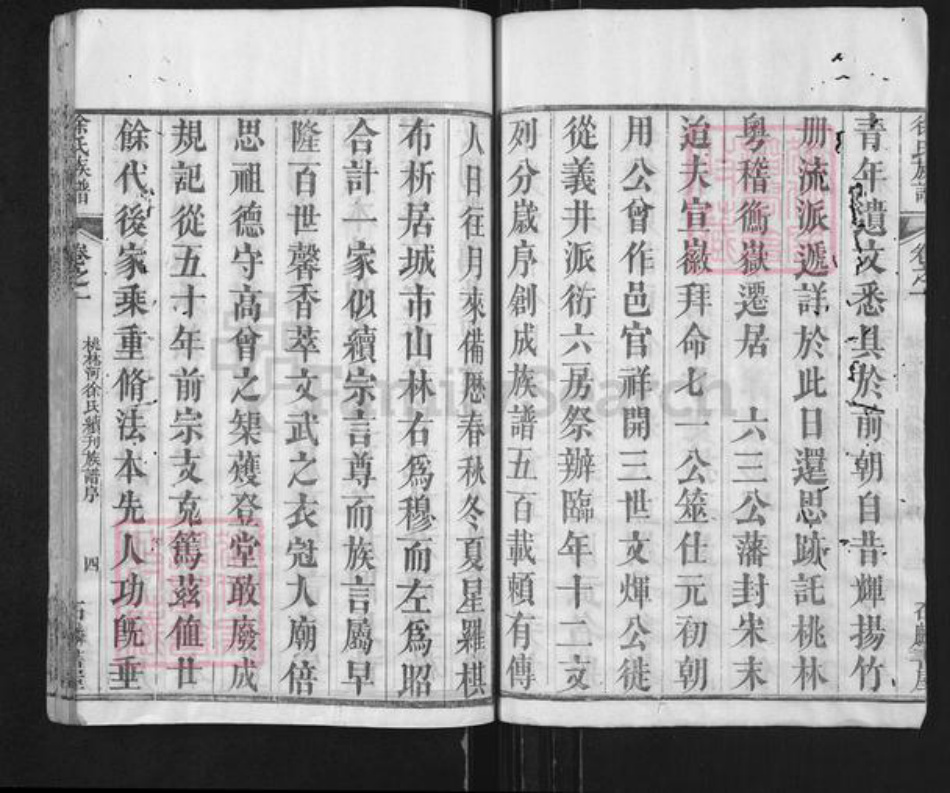 徐氏族譜
卷之一
青年遺文悉具於前朝自昔輝揚竹
册流派遞詳於此日還思跡託桃林
粤稽衡嶽遷居 六三公藩封宋末
迨夫宣徽拜命七一公筮仕元初朝
用公曾作邑官祥開三世文煇公徙
從義井派衍六房祭辦臨年十二文
列分歲序創成族譜五百載賴有傳
人日往月來備歷春秋冬夏星羅棋
布析居城市山林右爲穆而左爲昭
合計一家似續宗言尊而族言屬早
隆百世馨香萃文武之衣冠人廟倍
思祖德守高曾之榘矱登堂敢廢成
規記從五十年前宗支克篤茲值廿
餘代後家乘重脩法本先人功旣垂
徐氏族譜
卷之一
桃林河徐氏續刊族譜序
四
FamilySearch